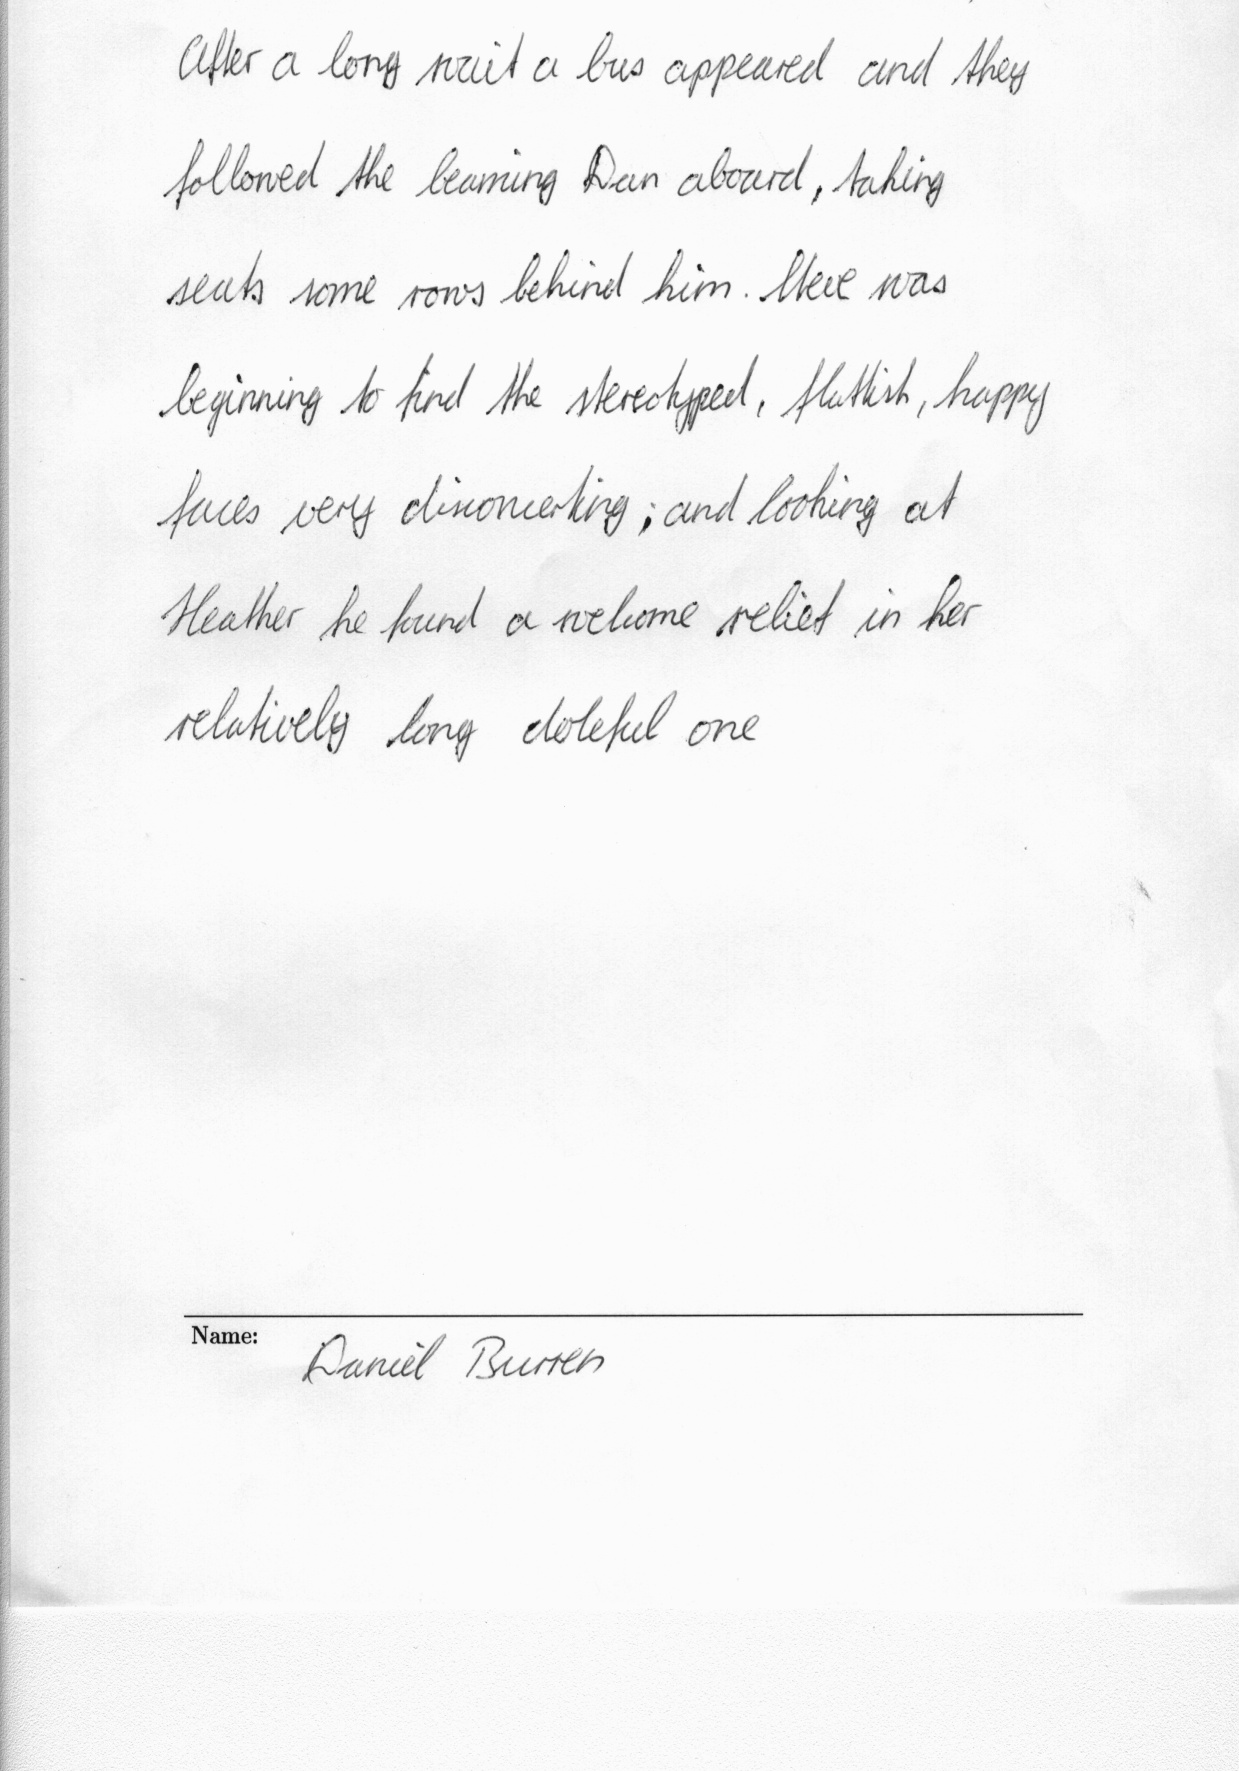 After a long wait a bus appeared and they
followed the beaming Dan aboard, taking
seats some rows behind him. was
beginning to find the stereotyped, flattish, happy
faces very disconcerting; and looking at
Heather he found a welcome relief in her
relatively long doleful one
Name: Daniel Burren